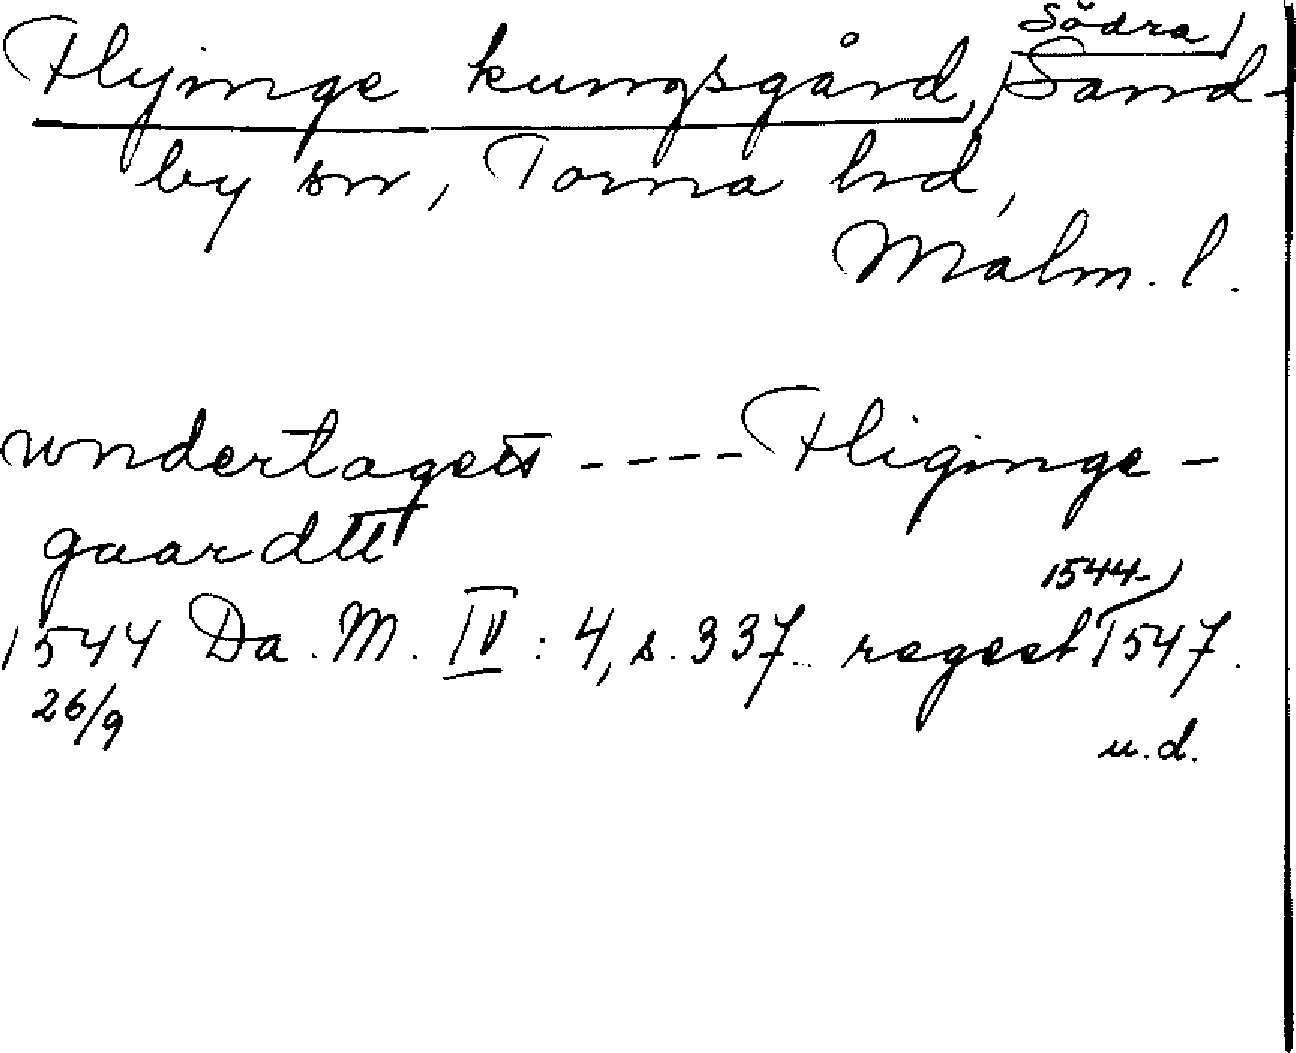 Flyinge kungsgård, Södra Sand-
by sn, Torna hd,
Malm. l.
wndertagett ---- Fliginge-
gaardtt
1544 Da. M. IV : 4, s. 337. regest 1544-1547.
26/9
u.d.